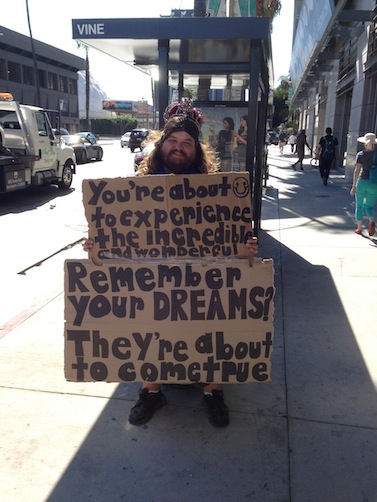 VINE
You're about ☺
to experience
the incredible
and wonderful
Remember
your DREAMS?
They're about
to come true